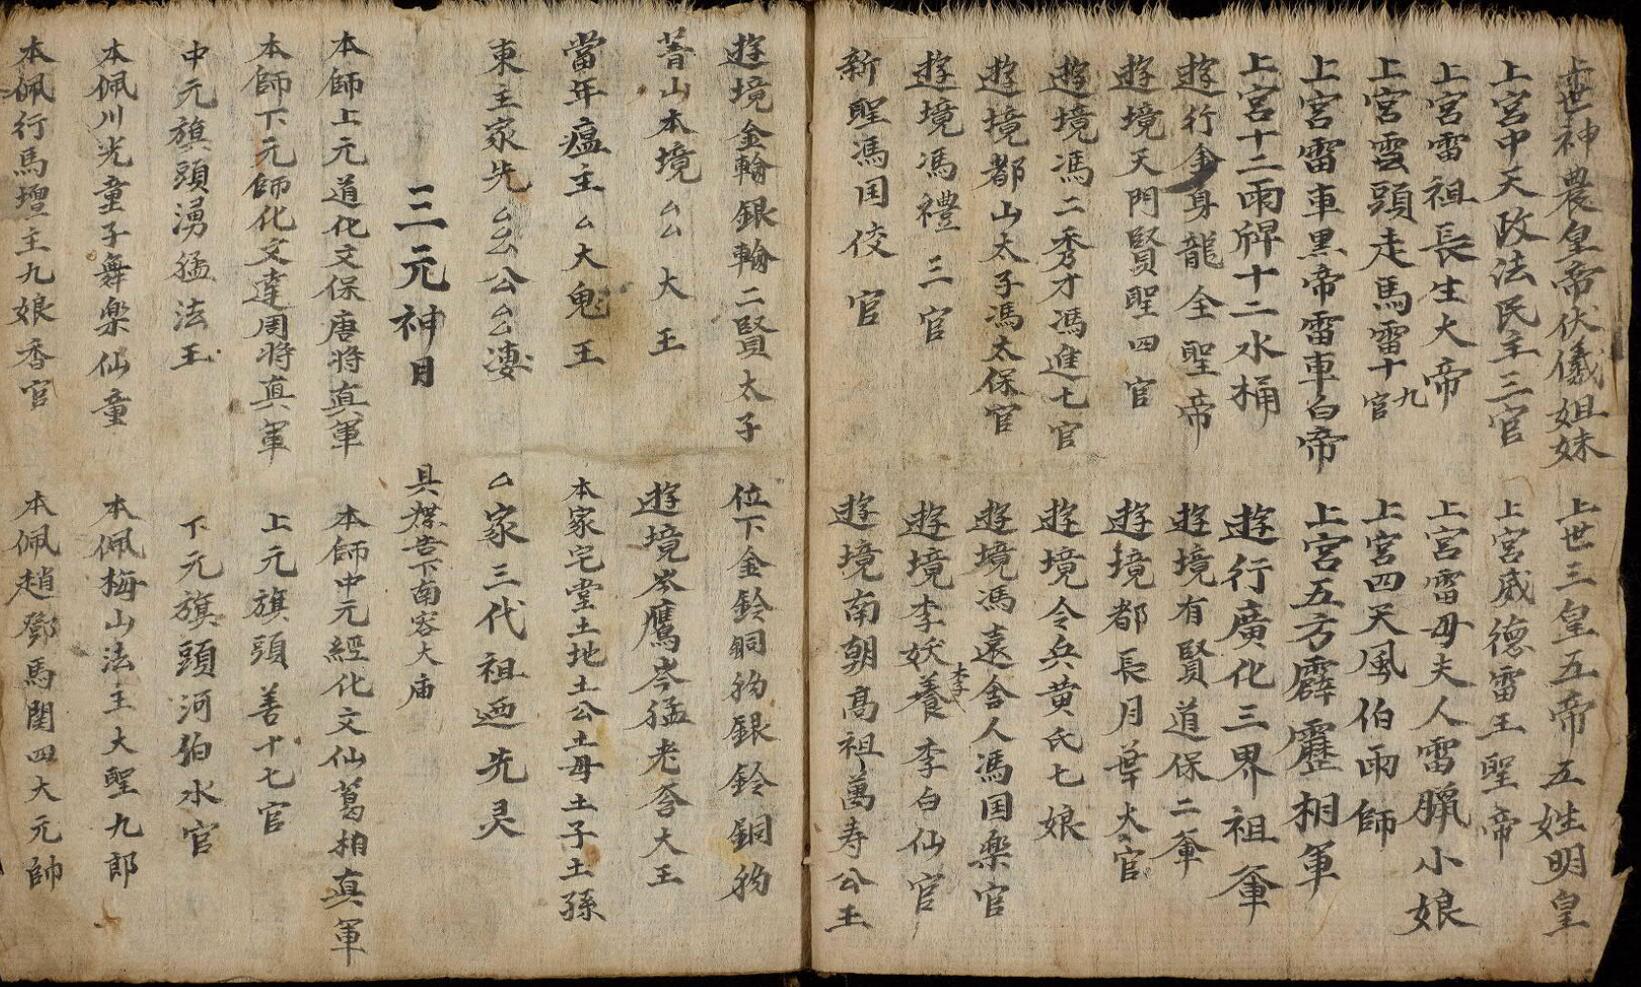 上世神農皇帝伏儀姐妹 上世三皇五帝五姓明皇
上宮中天政法民主三官 上宮威德雷王聖帝
上宮雷祖長生大帝 上宮雷母夫人雷腮小娘
上宮雲頭走馬雷十九官 上宮四天風伯雨師
上宮雷車黑帝雷車白帝 上宮五方霹靂相軍
上宮十二雨牌十二水桶 遊行廣化三界祖
遊行金身龍全聖帝 遊境有賢道保二
遊境天門賢聖四官 遊境都長月葉大官
遊境馮二秀才馮進七官 遊境令兵黄氏七娘
遊境都山太子馮太保官 遊境馮遠舍人馮国楽官
遊境馮禮三官 遊境李妖養李白仙官
新聖馮国佼官 遊境南朝高祖萬寿公王
遊境金輪銀輪二賢太子 位下金鈴銅物銀鈴銅物
莟山本境厶厶大王 遊境岑鷹岑猛老爷大王
當年瘟主厶大鬼王 本家宅堂土地土公土母土子土孫
東主家先厶厶公厶凄 厶家三代祖先灵
三元神目 具牒告下南容大庙
本師上元道化文保唐将真軍 本師中元經化文仙葛相真軍
本師下元師化文達周将真軍 上元旗頭善十七官
中元旗頭湧猛法王 下元旗頭河伯水官
本佩川光童子舞楽仙童 本佩梅山法主大聖九郎
本佩行馬壇主九娘香官 本佩趙鄧馬関四大元帥